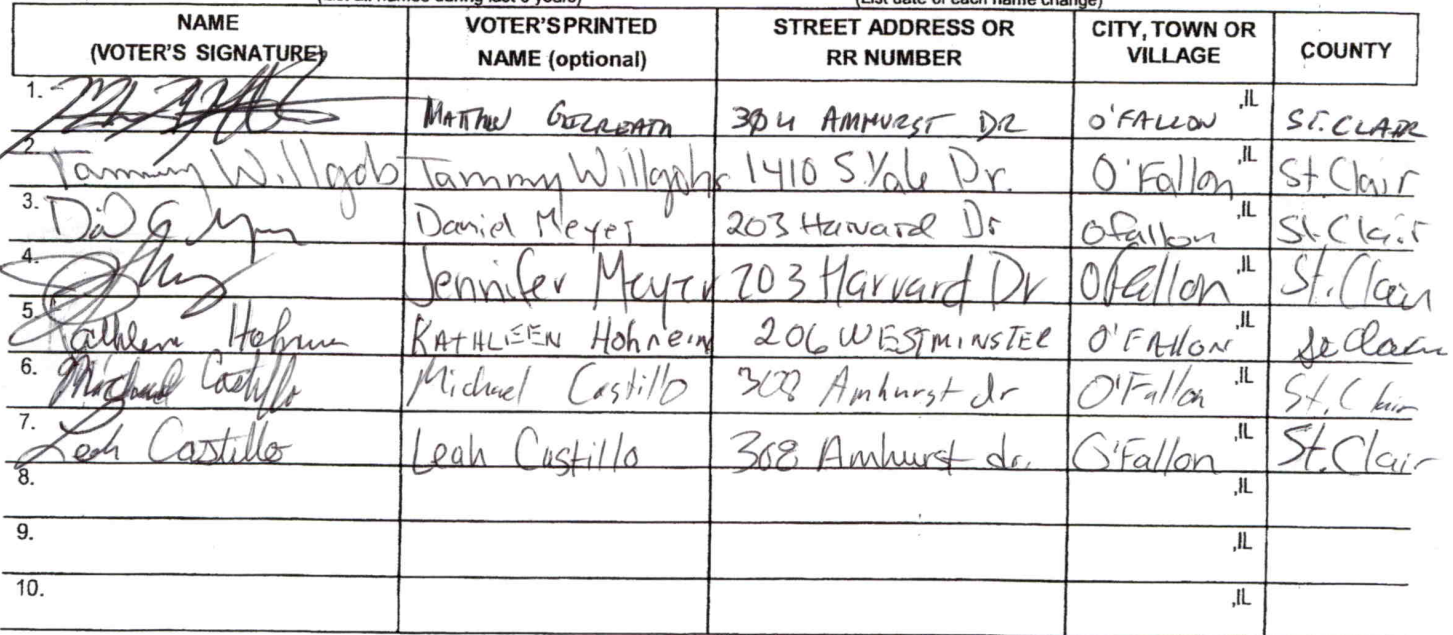 (List all names during last 3 years) (List date of each name change)
NAME (VOTER'S SIGNATURE) VOTER'S PRINTED NAME (optional) STREET ADDRESS OR RR NUMBER CITY, TOWN OR VILLAGE COUNTY
1. MATTHEW GILREATH 304 AMHURST DR O'FALLON ,IL ST. CLAIR
2. Tammy Willgohs Tammy Willgohs 1410 S. Yale Dr. O'Fallon ,IL St Clair
3. Daniel Meyer 203 Harvard Dr Ofallon ,IL St. Clair
4. Jennifer Meyer 203 Harvard Dr Ofallon ,IL St. Clair
5. Kathleen Hohrein KATHLEEN Hohrein 206 WESTMINSTER O'FAllON ,IL St Clair
6. Michael Castillo Michael Castillo 308 Amhurst dr O'Fallon ,IL St. Clair
7. Leah Castillo Leah Castillo 308 Amhurst dr. O'Fallon ,IL St. Clair
8. ,IL
9. ,IL
10. ,IL